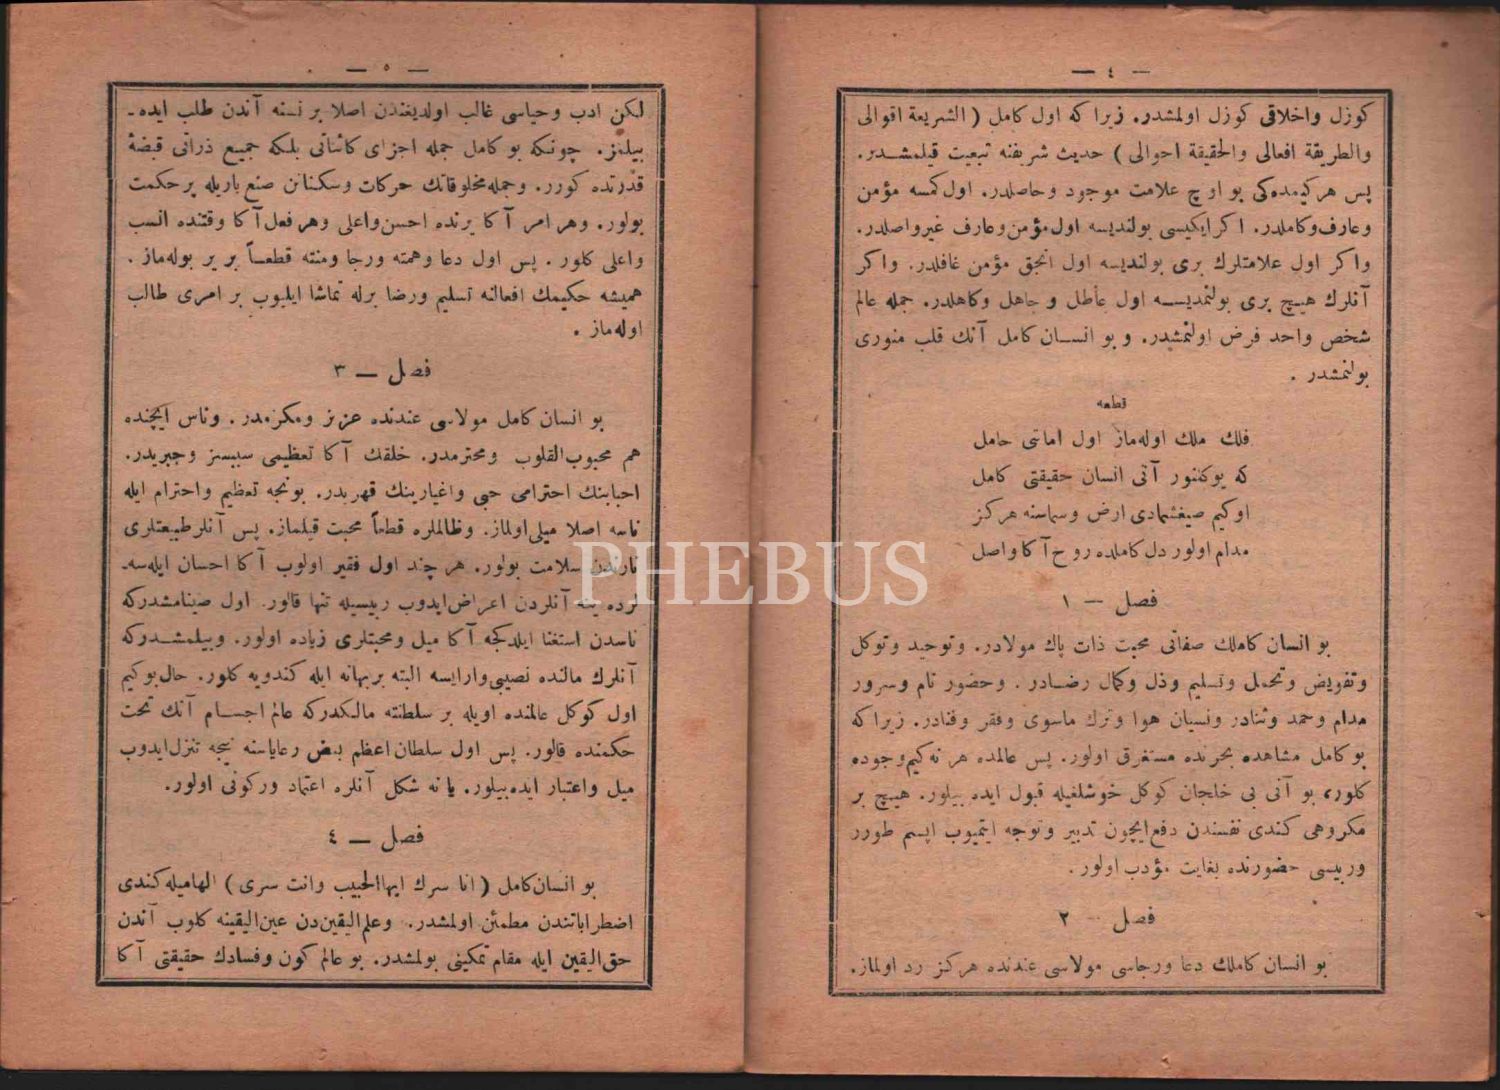 — ٤ —
كوزل واخلاقى كوزل اولمشدر. زيرا كه اول كامل ( الشريعة اقوالى
والطريقة افعالى والحقيقة احوالى ) حديث شريفنه تبعيت قيلمشدر.
پس هر كيمده كى بو اوچ علامت موجود وحاصلدر. اول كمسه مؤمن
وعارف وكاملدر. اكر ايكيسى بولنديسه اول مؤمن وعارف غير واصلدر.
واكر اول علامتلرك برى بولنديسه اول انجق مؤمن غافلدر. واكر
آنلرك هيچ برى بولنمديسه اول عاطل و جاهل وكاهلدر. جمله عالم
شخص واحد فرض اولنمشدر. و بو انسان كامل آنك قلب منورى
بولنمشدر .
قطعه
فلك ملك اوله‌ماز اول امانتى حامل
كه يوكلنور آنى انسان حقيقتى كامل
اوكيم صيغشمادى ارض وسماسنه هركز
مدام اولور دل كاملده روح آكا واصل
فصل — ١
بو انسان كاملك صفاتى محبت ذات پاك مولادر. وتوحيد وتوكل
وتفويض وتحمل وتسليم وذل وكمال رضادر . وحضور تام وسرور
مدام وحمد وثنادر ونسيان هوا وترك ماسوى وفقر وفنادر. زيرا كه
بو كامل مشاهده بحرنده مستغرق اولور. پس عالمده هر نه كيم وجوده
كلور، بو آنى بى خلجان كوكل خوشلغيله قبول ايده بيلور. هيچ بر
مكروهى كندى نفسندن دفع ايچون تدبير وتوجه ايتميوب اپسم طورر
وربيسى حضورنده بغايت مؤدب اولور.
فصل — ٢
بو انسان كاملك دعا ورجاسى مولاسى عندنده هركز رد اولماز.
— ٥ —
لكن ادب وحياسى غالب اولديغندن اصلا بر نسنه آندن طلب ايده‌ـ
بيلمز. چونكه بو كامل جمله اجزاى كائناتى بلكه جميع ذراتى قبضهٔ
قدرتده كورر. وجمله مخلوقاتك حركات وسكناتن صنع باريله پر حكمت
بولور. وهر امر آكا يرنده احسن واعلى وهر فعل آكا وقتنده انسب
واعلى كلور . پس اول دعا وهمته ورجا ومنته قطعاً بر ير بوله‌ماز .
هميشه حكيمك افعالنه تسليم ورضا برله تماشا ايليوب بر امرى طالب
اوله‌ماز .
فصل — ٣
بو انسان كامل مولاسى عندنده عزيز ومكرمدر. وناس ايچنده
هم محبوب القلوب ومحترمدر. خلقك آكا تعظيمى سببسز وجبريدر.
احبابنك احترامى حبى واغيارينك قهريدر. بونجه تعظيم واحترام ايله
ناسه اصلا ميلى اولماز. وظالملره قطعاً محبت قيلماز. پس آنلر طبيعتلرى
نارندن سلامت بولور. هر چند اول فقير اولوب آكا احسان ايله‌سه‌ـ
لرده ينه آنلردن اعراض ايدوب ربيسيله تنها قالور. اول صينامشدركه
ناسدن استغنا ايلدكجه آكا ميل ومحبتلرى زياده اولور. وبيلمشدركه
آنلرك مالنده نصيبى وارايسه البته بر بهانه ايله كندويه كلور. حال بوكيم
اول كوكل عالمنده اويله بر سلطنته مالكدركه عالم اجسام آنك تحت
حكمنده قالور. پس اول سلطان اعظم بعض رعاياسنه نيجه تنزل ايدوب
ميل واعتبار ايده بيلور. يا نه شكل آنلره اعتماد وركونى اولور.
فصل — ٤
بو انسان كامل ( انا سرك ايها الحبيب وانت سرى ) الهاميله كندى
اضطراباتندن مطمئن اولمشدر. وعلم اليقين‌دن عين اليقينه كلوب آندن
حق اليقين ايله مقام تمكينى بولمشدر. بو عالم كون وفسادك حقيقتى آكا
PHEBUS